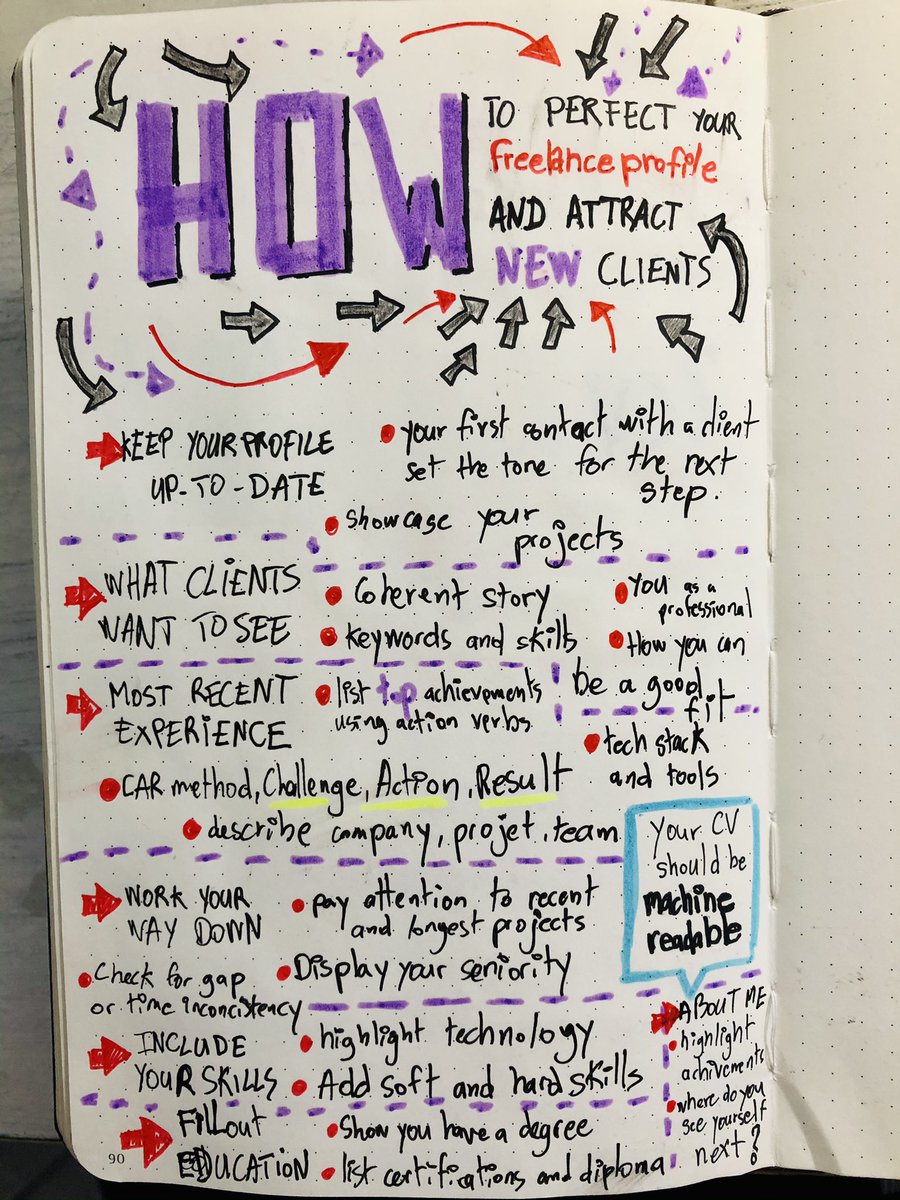 HOW
TO PERFECT YOUR
freelance profile
AND ATTRACT
NEW CLIENTS
KEEP YOUR PROFILE
UP-TO-DATE
your first contact with a client
set the tone for the next
step.
showcase your
projects
WHAT CLIENTS
WANT TO SEE
Coherent story
keywords and skills
You as a
professional
How you can
be a good
fit
MOST RECENT
EXPERIENCE
list top achievements
using action verbs
tech stack
and tools
CAR method, Challenge, Action, Result
describe company, projet, team
Your CV
should be
machine
readable
WORK YOUR
WAY DOWN
pay attention to recent
and longest projects
Check for gap
or time inconcistency
Display your seniority
INCLUDE
YOUR SKILLS
highlight technology
Add soft and hard skills
ABOUT ME
highlight
achivements
where do you
see yourself
next?
Fill out
EDUCATION
Show you have a degree
list certifications and diploma
90